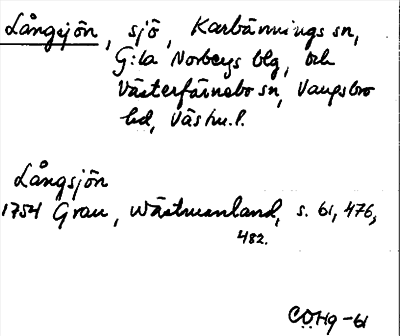 Långsjön, sjö, Karbännings sn,
G:la Norbergs blg, och
Västerfärnebo sn, Vangsbro
hd, Västm.l.
Långsjön
1754 Grau, Wästmanland, s. 61, 476,
482.
CÖHg-61